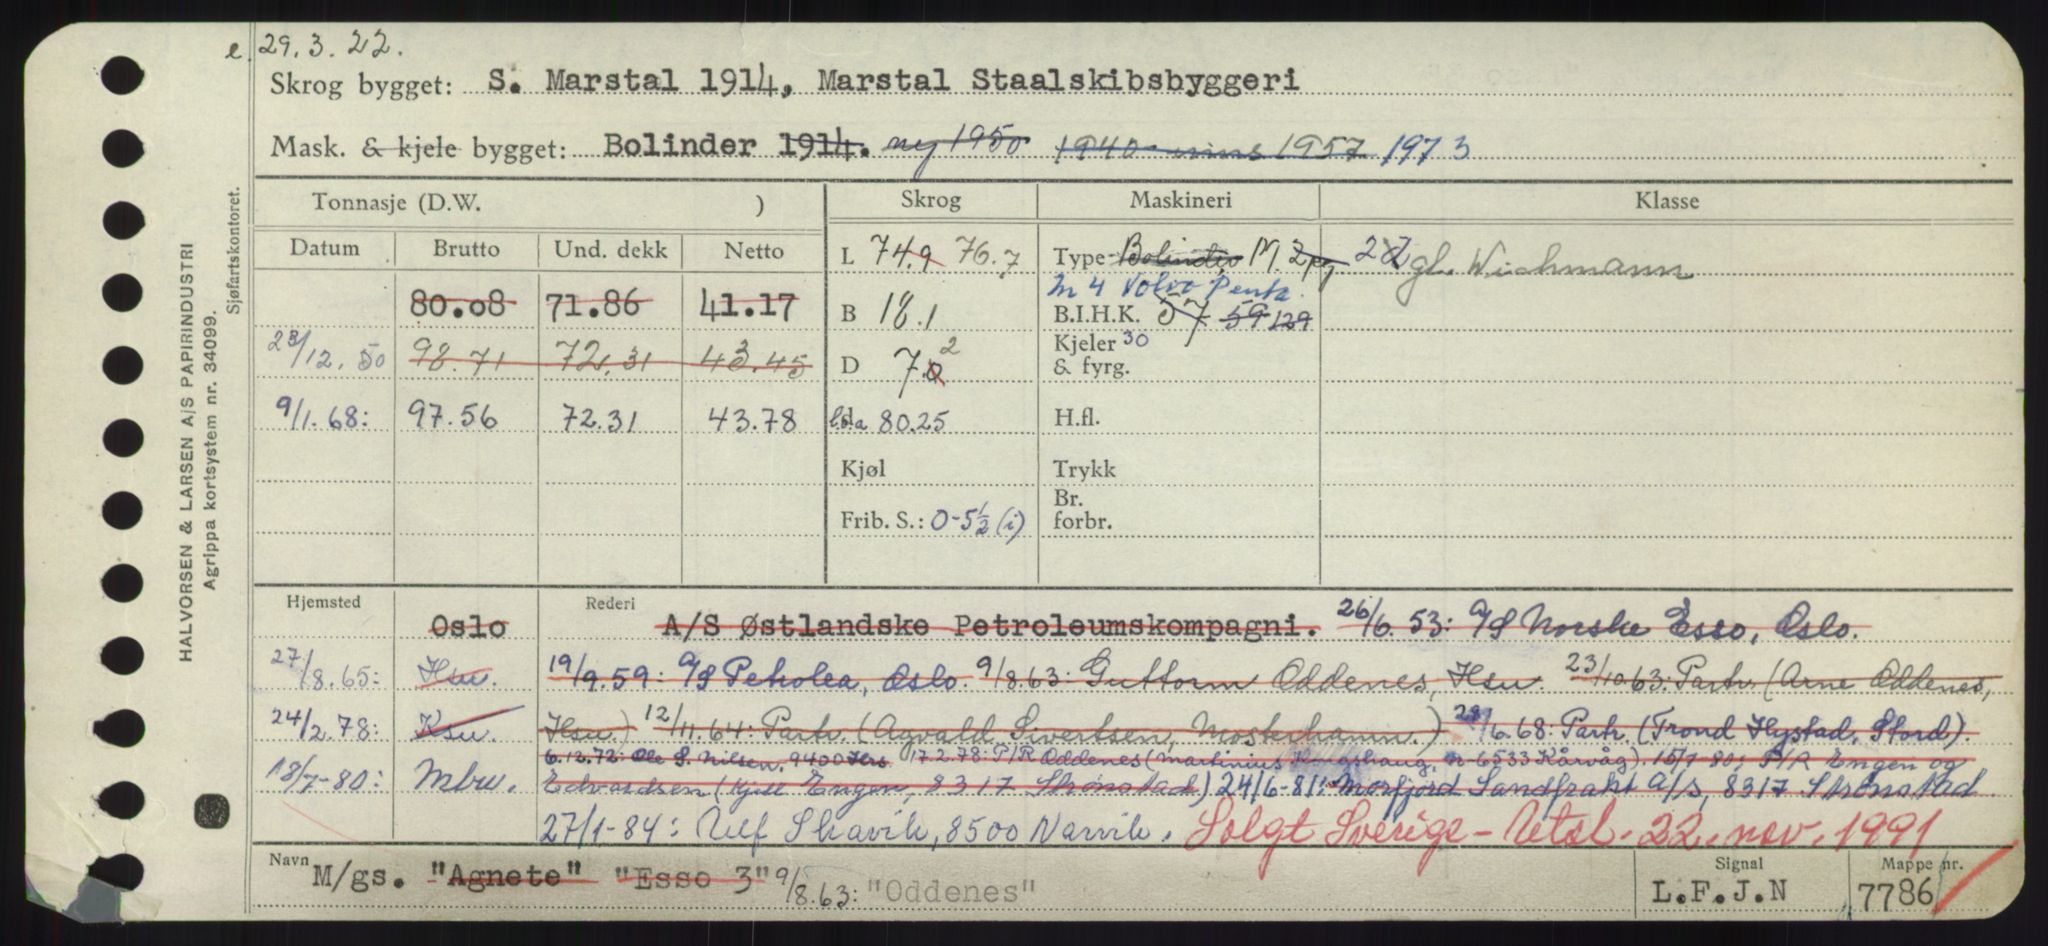 e. 29.3.22.
Skrog bygget: S. Marstal 1914, Marstal Staalskibsbyggeri
Mask. & kjele bygget: Bolinder 1914. ny 1950 1940 1957 1973
Tonnasje (D.W. ) Skrog Maskineri Klasse
Datum Brutto Und. dekk Netto L 74.9 76.7 Type Bolinder M. 2 22 gl. Wichmann
m 4 Volvo Penta
80.08 71.86 41.17 B 18.1 B.I.H.K. 57 59 129
23/12.50 98.71 72.31 43.45 D 7.0 2 Kjeler 30
& fyrg.
9/1.68: 97.56 72.31 43.78 loa 80.25 H.fl.
Kjøl Trykk
Frib. S.: 0-5½ (i) Br. forbr.
Hjemsted Oslo Rederi A/S Østlandske Petroleumskompagni. 26/6.53: A/S Norske Esso, Oslo.
27/8.65: Hsu. 19/9.59: A/S Petrolea, Oslo. 9/8.63: Guttorm Oddenes, Hsu. 23/10.63: Partr. (Arne Oddenes,
24/2.78: Ksu. Hsu.) 12/11.64: Partr. (Agvald Sivertsen, Mosterhamn.) 28/6.68: Partr. (Trond Hystad, Stord).
6.12.72: Ole S. Nilsen, 9400 Hrs. 17.2.78: P/R Oddenes (Martinius Kongshaug, N-6533 Kårvåg). 15/7-80: P/R Engen og
18/7-80: Mbu. Edvardsen (Kjell Engen, 8317 Strønstad) 24/6-81: Morfjord Sandfrakt A/S, 8317 Strønstad
27/1-84: Ulf Skavik, 8500 Narvik. Solgt Sverige - Utsl. 22. nov. 1991
Navn M/gs. "Agnete" "Esso 3" 9/8.63: "Oddenes" Signal L.F.J.N Mappe nr. 7786
HALVORSEN & LARSEN A/S PAPIRINDUSTRI
Agrippa kortsystem nr. 34099.
Sjøfartskontoret.